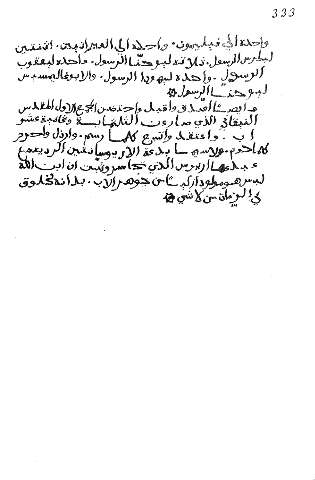 333
واحدة الى فيليمون. واحدة الى العبرانيين. اثنتين
لبطرس الرسول. ثلاثة ليوحنّا الرسول. واحدة ليعقوب
الرسول. واحدة ليهودا الرسول. والابوغالمسيس
ليوحنا الرسول
ايضًا اصدق واقبل واحتضن المجمع الاول المقدس
النيقاوي الذي صار من الثلثماية وثمانية عشر
اب. واعتقد واتبع كلما رسم. وارذل واحرم
كلما حرم. ولاسيما بدعة الاريوسانيين الردية مع
اريوس الذي تجاسر وثبت ان ابن الله
ليس هو مولود ازليًا من جوهر الاب. بل انه مخلوق
في الزمان من لاشي